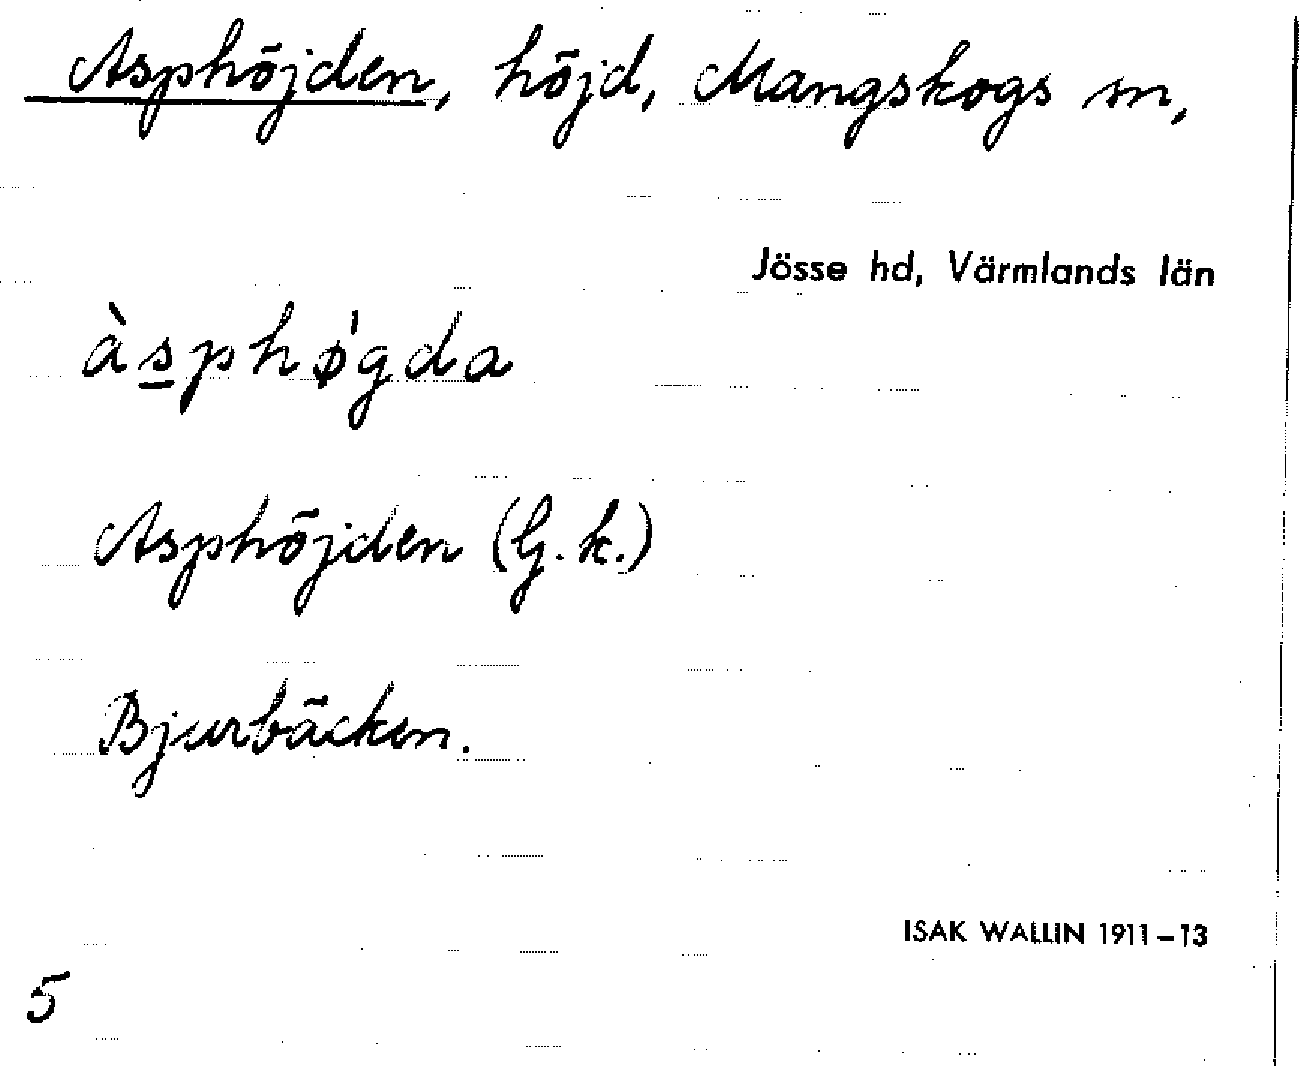 Asphöjden, höjd, Mangskogs sn,
Jösse hd, Värmlands län
àsphǿgda
Asphöjden (G.k.)
Bjurbäcken.
ISAK WALLIN 1911–13
5